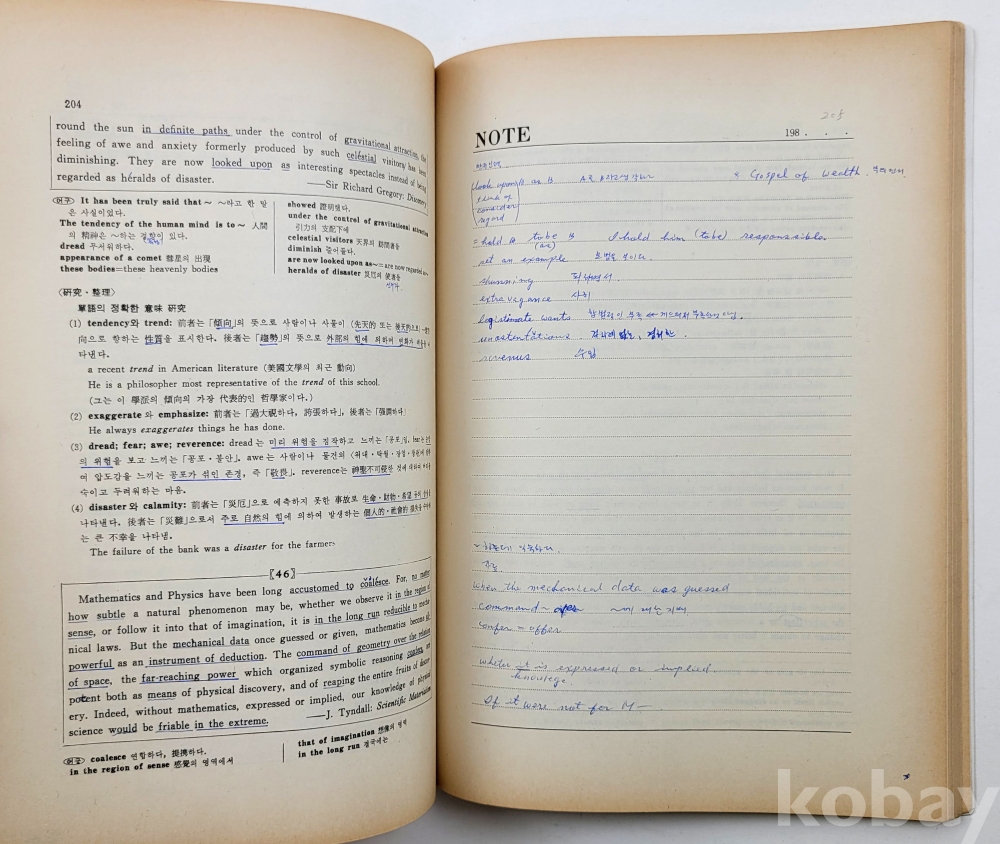 204
round the sun in definite paths under the control of gravitational attraction, the
feeling of awe and anxiety formerly produced by such celéstial visitors has been
diminishing. They are now looked upon as interesting spectacles instead of being
regarded as héralds of disaster.
—Sir Richard Gregory: Discovery
It has been truly said that~ ~라고 한 말
은 사실이었다.
The tendency of the human mind is to~ 人間
의 精神은 ~하는 경향이 있다.
dread 두려워하다.
appearance of a comet 彗星의 出現
these bodies=these heavenly bodies
showed 證明했다.
under the control of gravitational attraction
引力의 支配下에
celestial visitors 天界의 訪問客을
diminish 줄이들다.
are now looked upon as~=are now regarded as~
heralds of disaster 災厄의 使者를
〈硏究·整理〉
單語의 정확한 意味 硏究
(1) tendency와 trend: 前者는 「傾向」의 뜻으로 사람이나 사물이 (先天的 또는 後天的으로)
向으로 향하는 性質을 표시한다. 後者는 「趨勢」의 뜻으로 外部의 힘에 의하여
타낸다.
a recent trend in American literature (美國文學의 최근 動向)
He is a philosopher most representative of the trend of this school.
(그는 이 學派의 傾向의 가장 代表的인 哲學家이다.)
(2) exaggerate와 emphasize: 前者는 「過大視하다, 誇張하다」, 後者는 「強調하다」
He always exaggerates things he has done.
(3) dread; fear; awe; reverence: dread는 미리 위험을 짐작하고 느끼는 「공포」임. fear는
의 위험을 보고 느끼는 「공포·불안」. awe는 사람이나 물건의
여 압도감을 느끼는 공포가 섞인 존경, 즉 「敬畏」. reverence는 神聖不可侵한
숙이고 두려워하는 마음.
(4) disaster와 calamity: 前者는 「災厄」으로 예측하지 못한 事故로 生命·財物·希望
나타낸다. 後者는 「災難」으로서 주로 自然의 힘에 의하여 발생하는 個人的·社會的
는 큰 不幸을 나타냄.
The failure of the bank was a disaster for the farmers
〖46〗
Mathematics and Physics have been long accustomed to coalésce. For, no matter
how subtle a natural phenomenon may be, whether we observe it in the region of
sense, or follow it into that of imagination, it is in the long run reducible to mechanical
nical laws. But the mechanical data once guessed or given, mathematics become all-
powerful as an instrument of deduction. The command of geometry over the relations
of space, the far-reaching power which organized symbolic reasoning confers, are
potent both as means of physical discovery, and of reaping the entire fruits of discov-
ery. Indeed, without mathematics, expressed or implied, our knowledge of physical
science would be friable in the extreme.
—J. Tyndall: Scientific Materialism
coalesce 연합하다, 提携하다.
in the region of sense 感覺의 영역에서
that of imagination 想像의 영역
in the long run 결국에는
205
NOTE
198 . . .
look upon A as B
think of
consider
regard
* Gospel of wealth.
= hold A to be B I hold him (to be) responsible.
(as)
set an example 모범을 보이다.
shunning
extravagance 사치
legitimate wants
unostentatious
revenus 수입
when the mechanical data was guessed
command~
confer = offer
whether it is expressed or implied
knowlege.
If it were not for M—
kobay